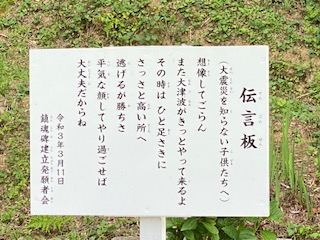 伝言板
(大震災を知らない子供たちへ)
想像してごらん
また大津波がきっとやって来るよ
その時は ひと足さきに
さっさと高い所へ
逃げるが勝ちさ
平気な顔してやり過ごせば
大丈夫だからね
令和3年3月11日
鎮魂碑建立発願者会